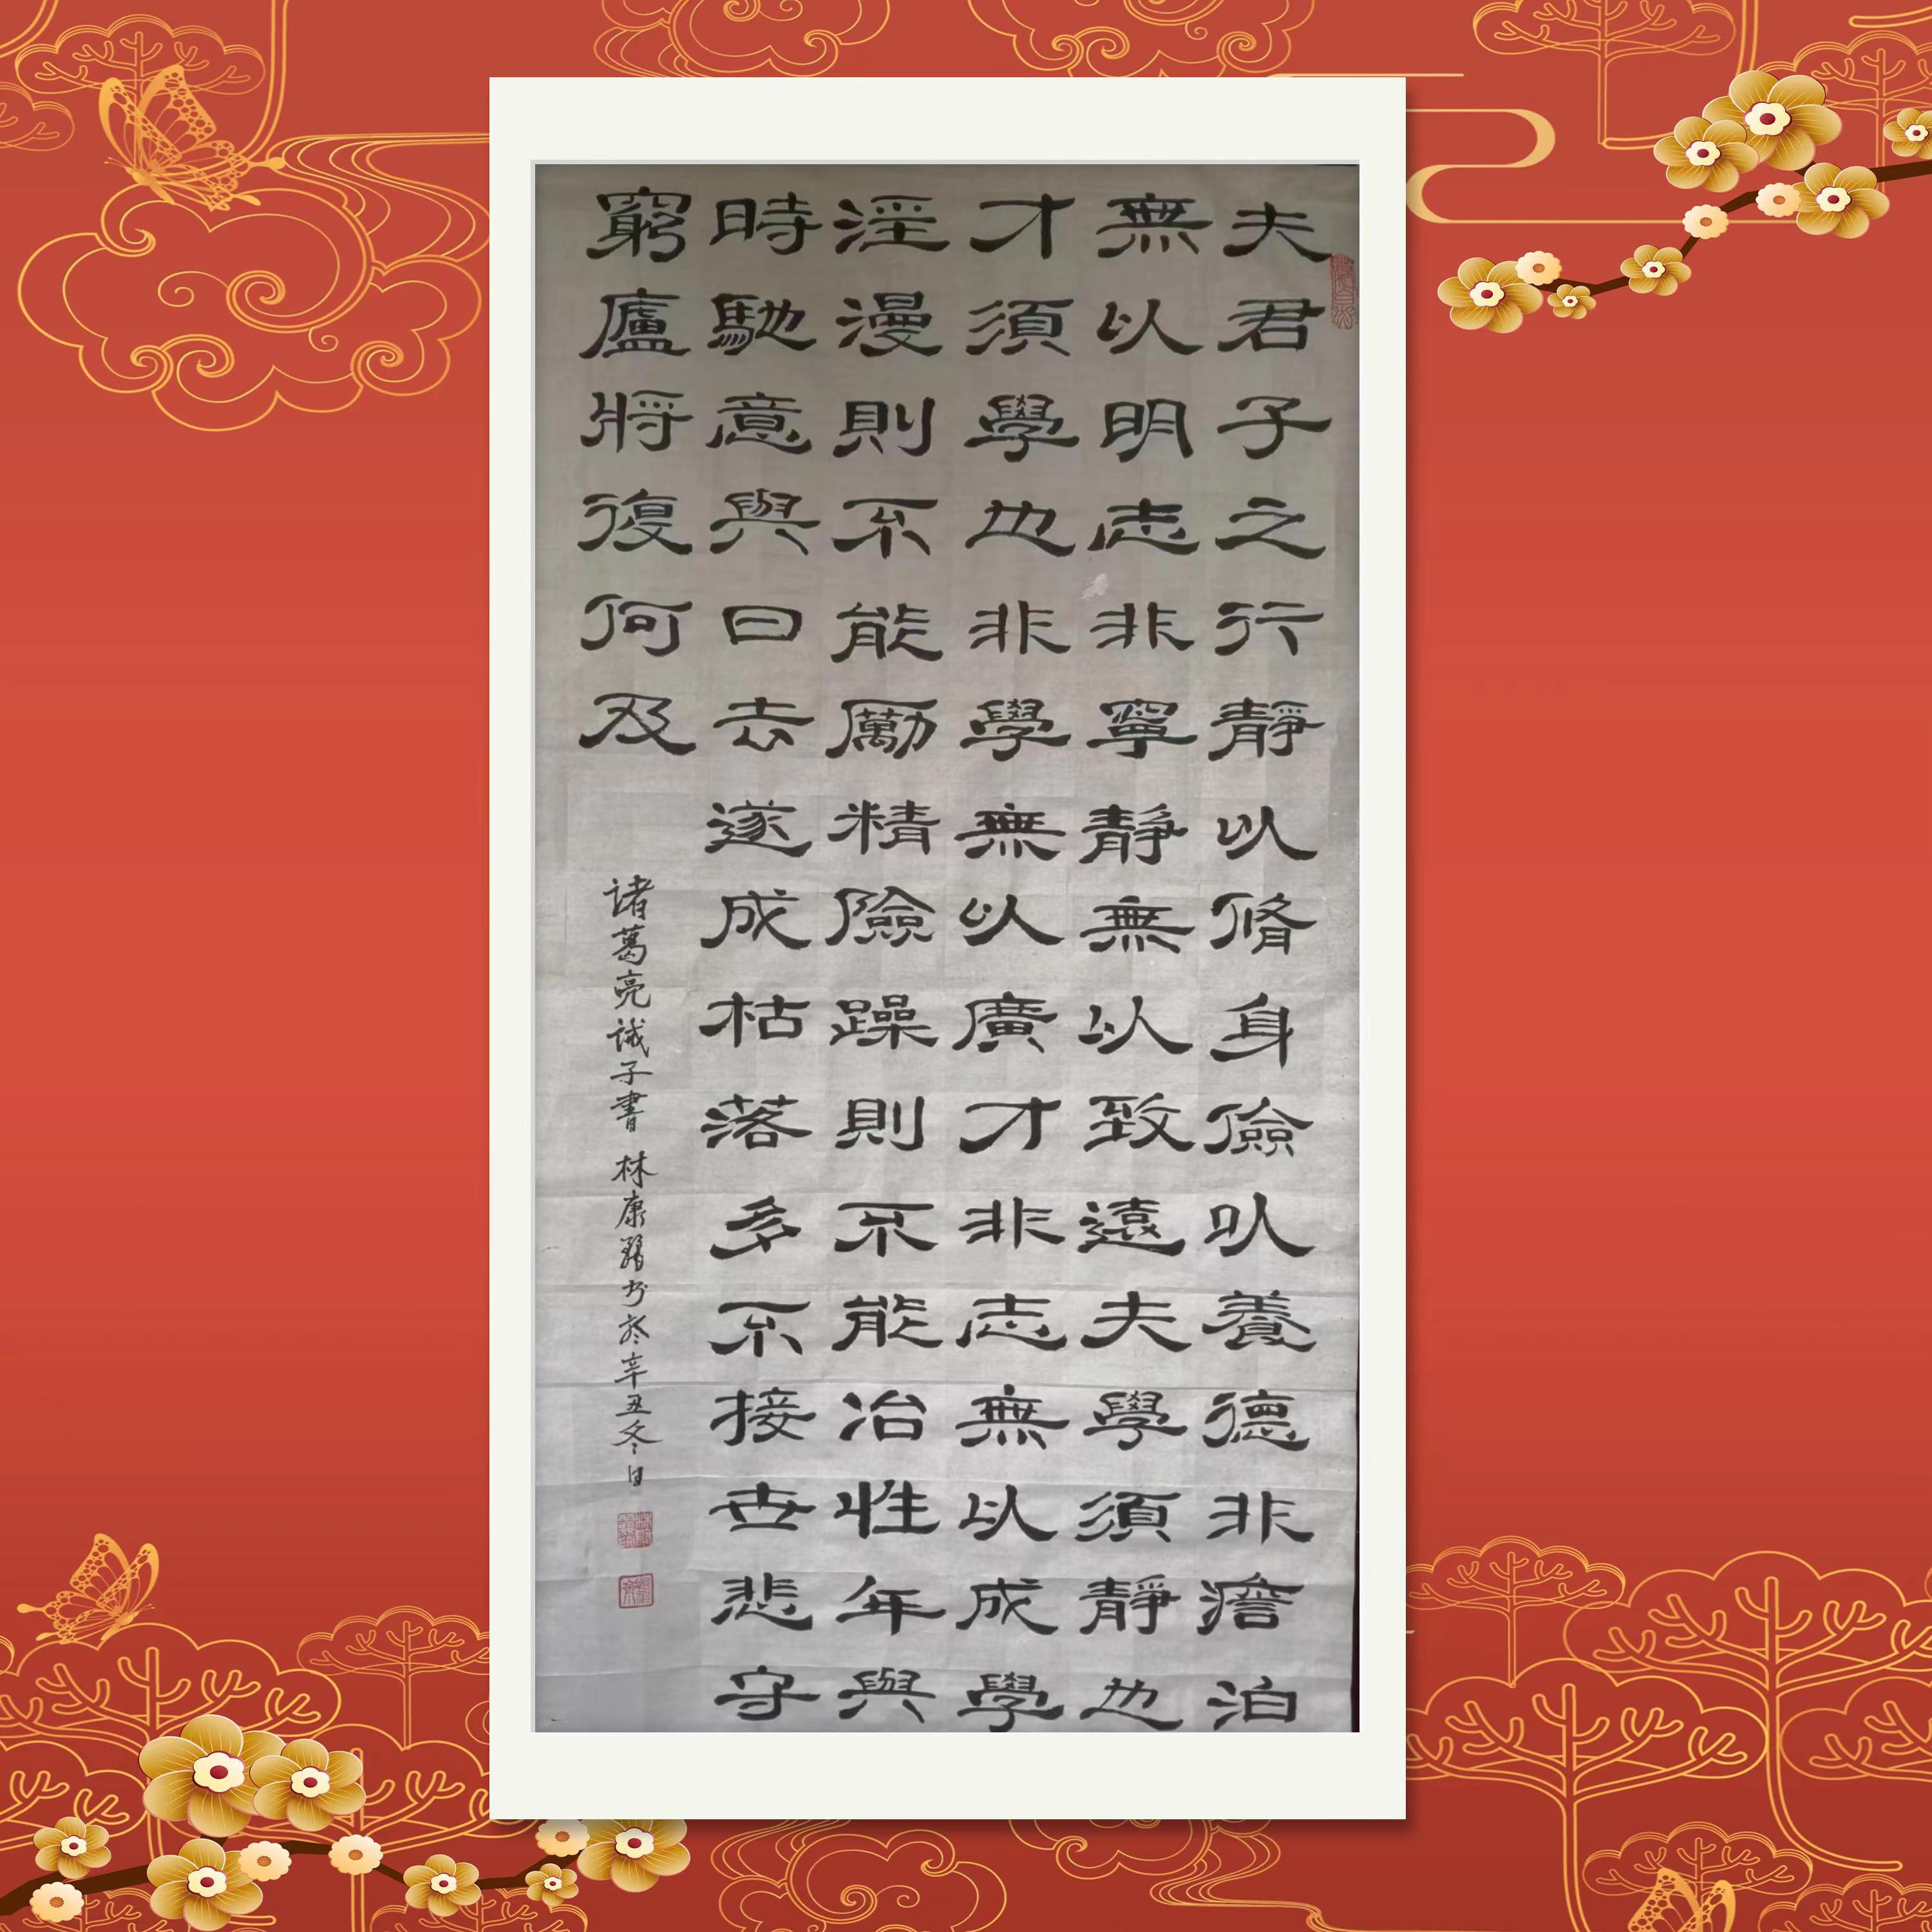 夫君子之行靜以脩身儉以養德非澹泊
無以明志非寧靜無以致遠夫學須靜也
才須學也非學無以廣才非志無以成學
淫漫則不能勵精險躁則不能冶性年與
時馳意與日去遂成枯落多不接世悲守
窮廬將復何及
諸葛亮诫子書 林康 书於辛丑冬日